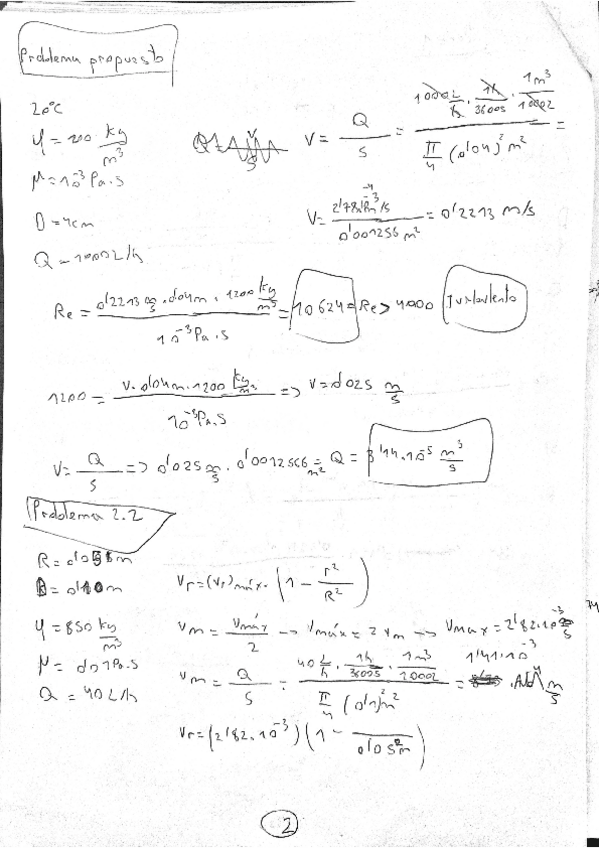 Problema propuesto
20ºC
φ = 1200 kg/m³
μ = 10⁻³ Pa·s
D = 4cm
Q = 1000L/h
V = Q/S = (1000L/h · 1h/3600s · 1m³/1000L) / (π/4 (0'04)² m²) =
V = 2'78·10⁻⁴ m³/s / 0'001256 m² = 0'2213 m/s
Re = (0'2213 m/s · 0'04m · 1200 kg/m³) / (10⁻³ Pa·s) = 10624 = Re > 4000 Turbulento
1200 = (V · 0'04m · 1200 kg/m³) / (10⁻³ Pa·s) => V = 0'025 m/s
V = Q/S => 0'025 m/s · 0'0012566 m² = Q = 3'14·10⁻⁵ m³/s
Problema 2.2
R = 0'05m
D = 0'10m
φ = 850 kg/m³
μ = 0'01 Pa·s
Q = 40L/h
Vr = (Vr)máx · (1 - r²/R²)
Vm = Vmáx/2 → Vmáx = 2Vm → Vmax = 2'82·10⁻³ m/s
Vm = Q/S = (40 L/h · 1h/3600s · 1m³/1000L) / (π/4 (0'1)² m²) = 1'41·10⁻³ m/s
Vr = (2'82·10⁻³) (1 - / 0'05² m)
2